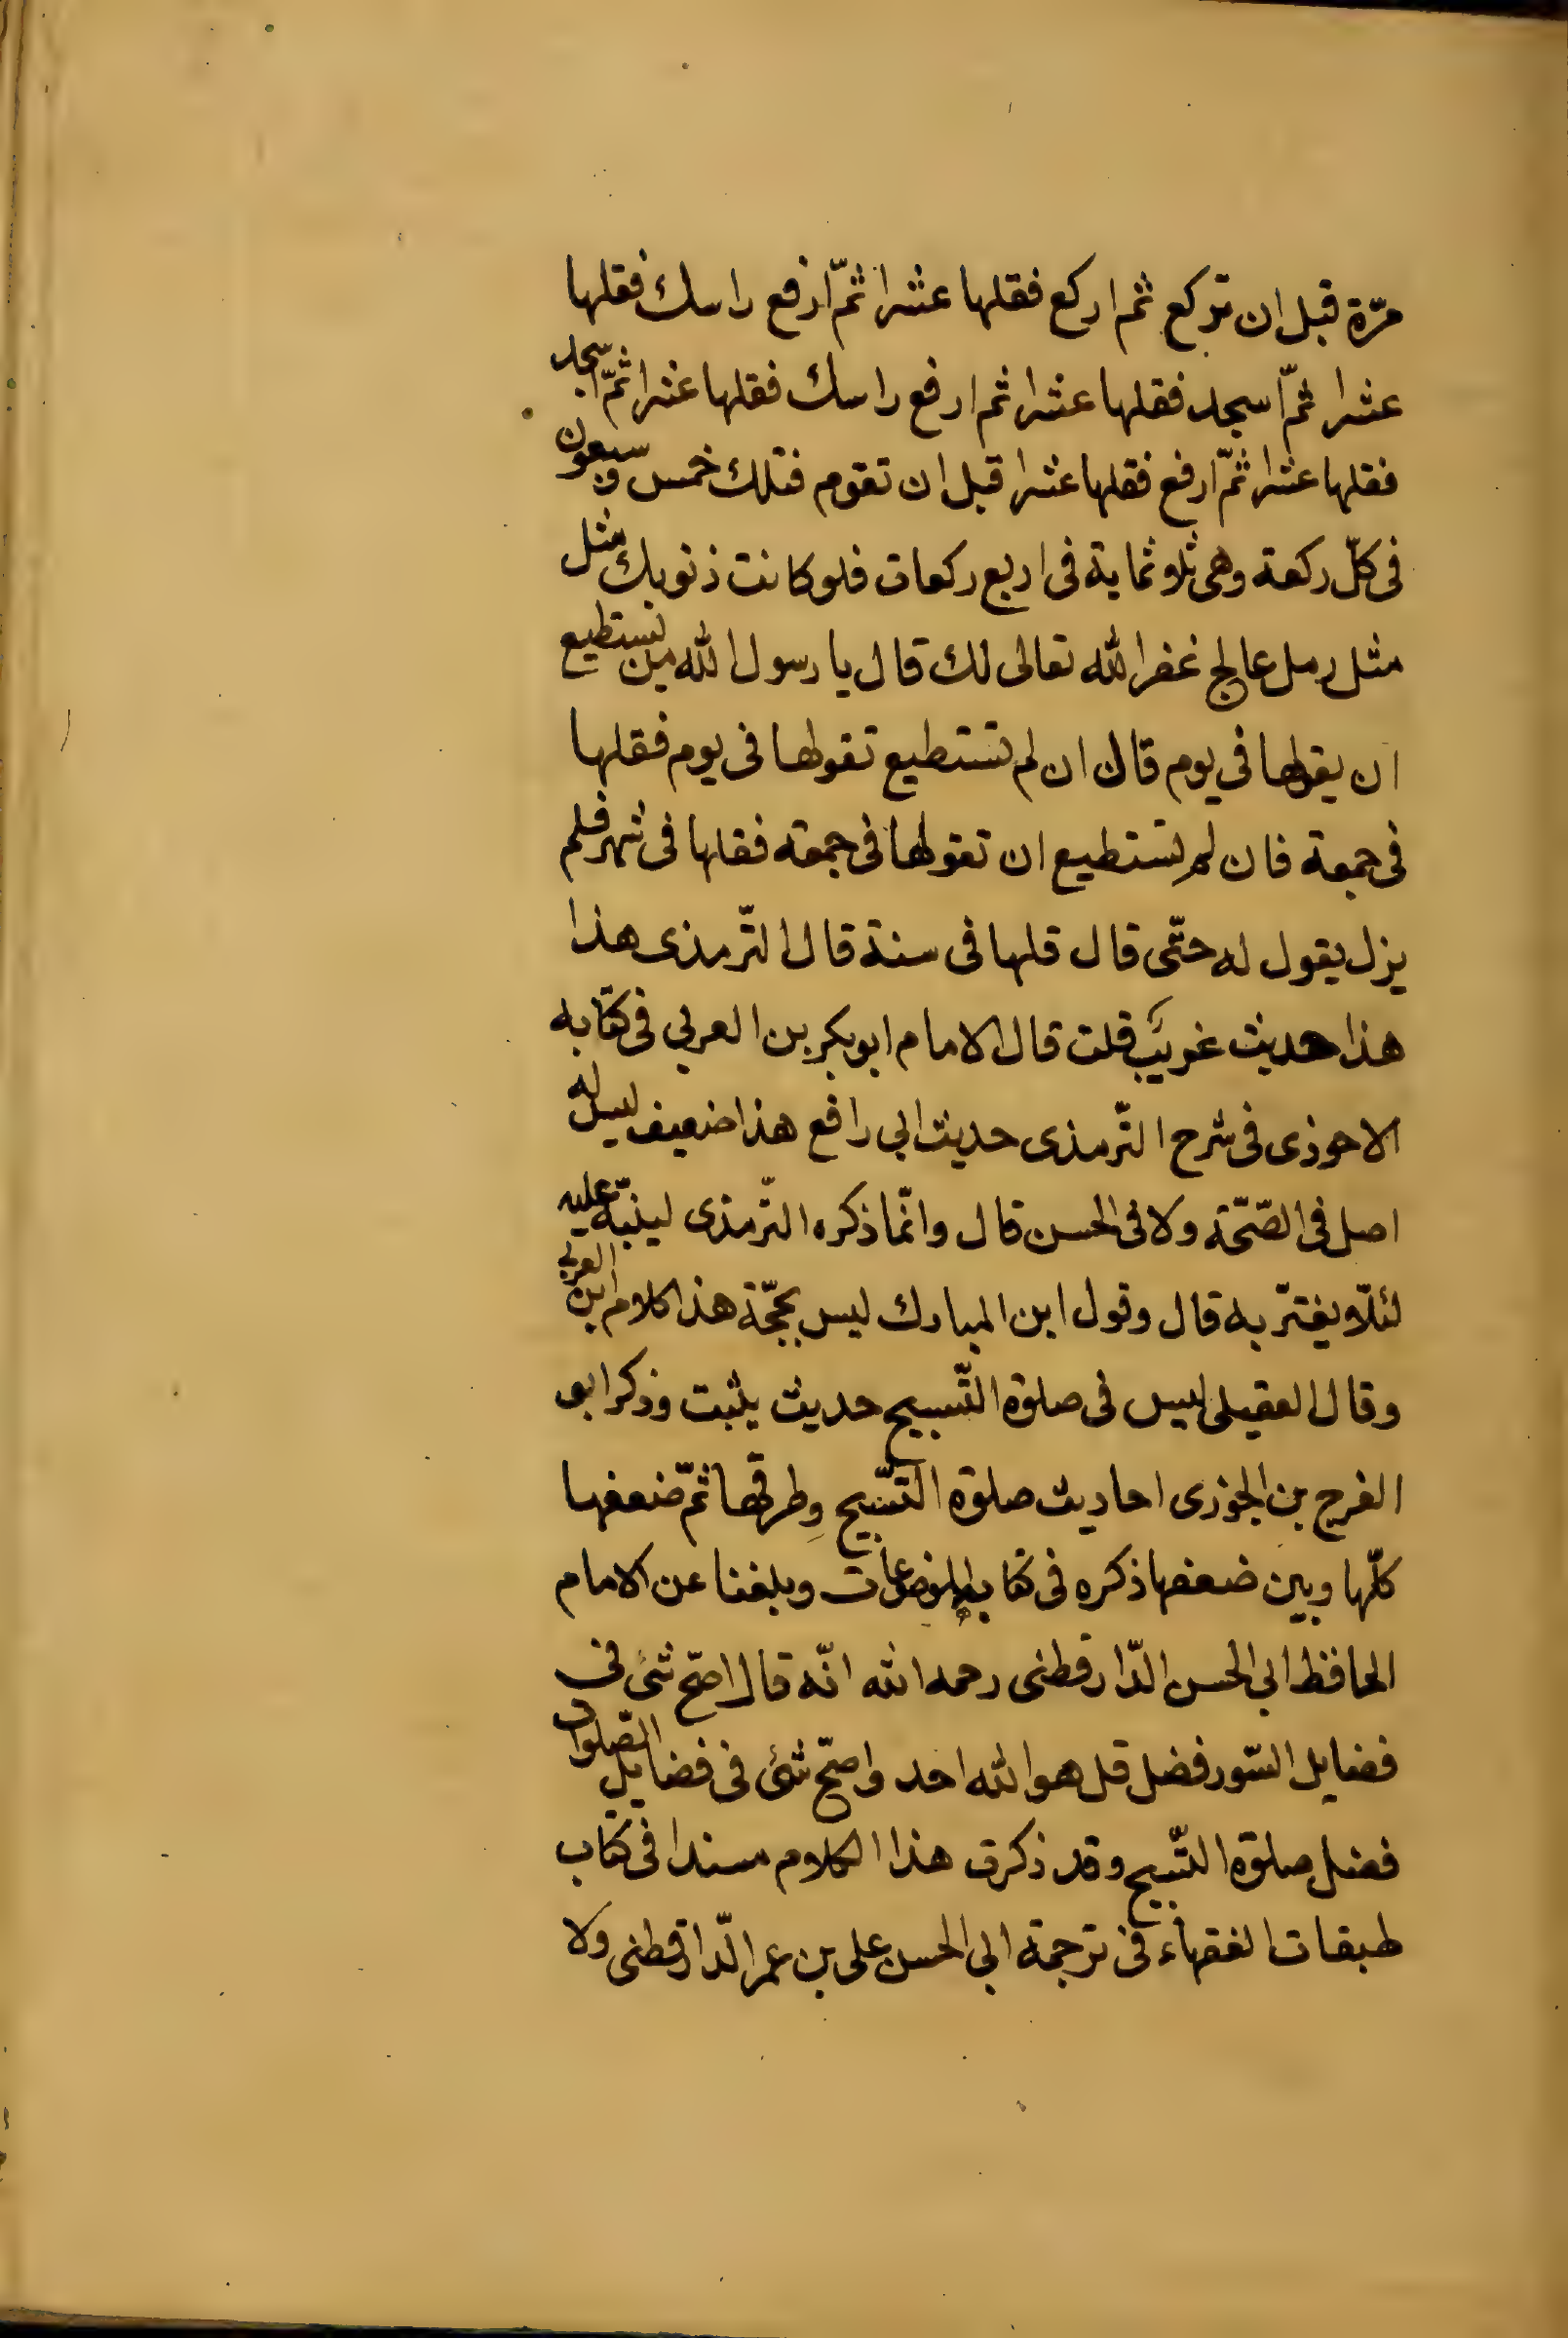 مرّة قبل ان تركع ثم اركع فقلها عشرا ثمّ ارفع راسك فقلها
عشرا ثمّ اسجد فقلها عشرا ثم ارفع راسك فقلها عشرا ثمّ اسجد
فقلها عشرا ثمّ ارفع فقلها عشرا قبل ان تقوم فتلك خمس وسبعون
فى كلّ ركعة وهى ثلوثماية فى اربع ركعات فلو كانت ذنوبك مثل
مثل رمل عالج غفر الله تعالى لك قال يا رسول الله من يستطيع
ان يقولها فى يوم قال ان لم تستطيع تقولها فى يوم فقلها
فى جمعة فان لم تستطيع ان تقولها فى جمعة فقلها فى شهر فلم
يزل يقول له حتّى قال قلها فى سنة قال الترّمذى هذا
هذا حديث غريب قلت قال الامام ابو بكر بن العربي فى كتابه
الاحوذى فى شرح الترّمذى حديث ابي رافع هذا ضعيف ليس له
اصل فى الصّحّة ولا فى الحسن قال وانّما ذكره الترّمذى لينبّه عليه
لئلّا يغترّ به قال وقول ابن المبارك ليس بحجّة هذا كلام ابن العربي
وقال العقيلى ليس فى صلوة التّسبيح حديث يثبت وذكر ابو
الفرج بن الجوزى احاديث صلوة التّسبيح وطرقها ثمّ ضعفها
كلّها وبين ضعفها ذكره فى كتابه الموضوعات وبلغنا عن الامام
الحافظ ابي الحسن الدّارقطنى رحمه الله انّه قال اصّح شئ فى
فضايل السّور فضل قل هو الله احد واصّح شئ فى فضايل الصّلوات
فضل صلوة التّسبيح وقد ذكرت هذا الكلام مسندا فى كتاب
طبقات الفقهاء فى ترجمة ابي الحسن على بن عمر الدّارقطنى ولا